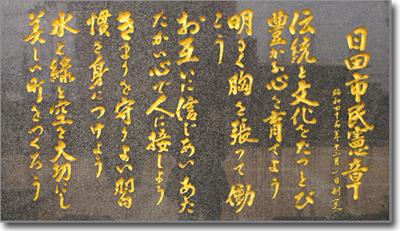 日田市民憲章
昭和
伝統と文化をたっとび
豊かな心を育てよう
明るく胸を張って働
こう
お互いに信じあいあた
たかい心で人に接しよう
きまりを守りよい習
慣を身につけよう
水と緑と空を大切にし
美しい町をつくろう